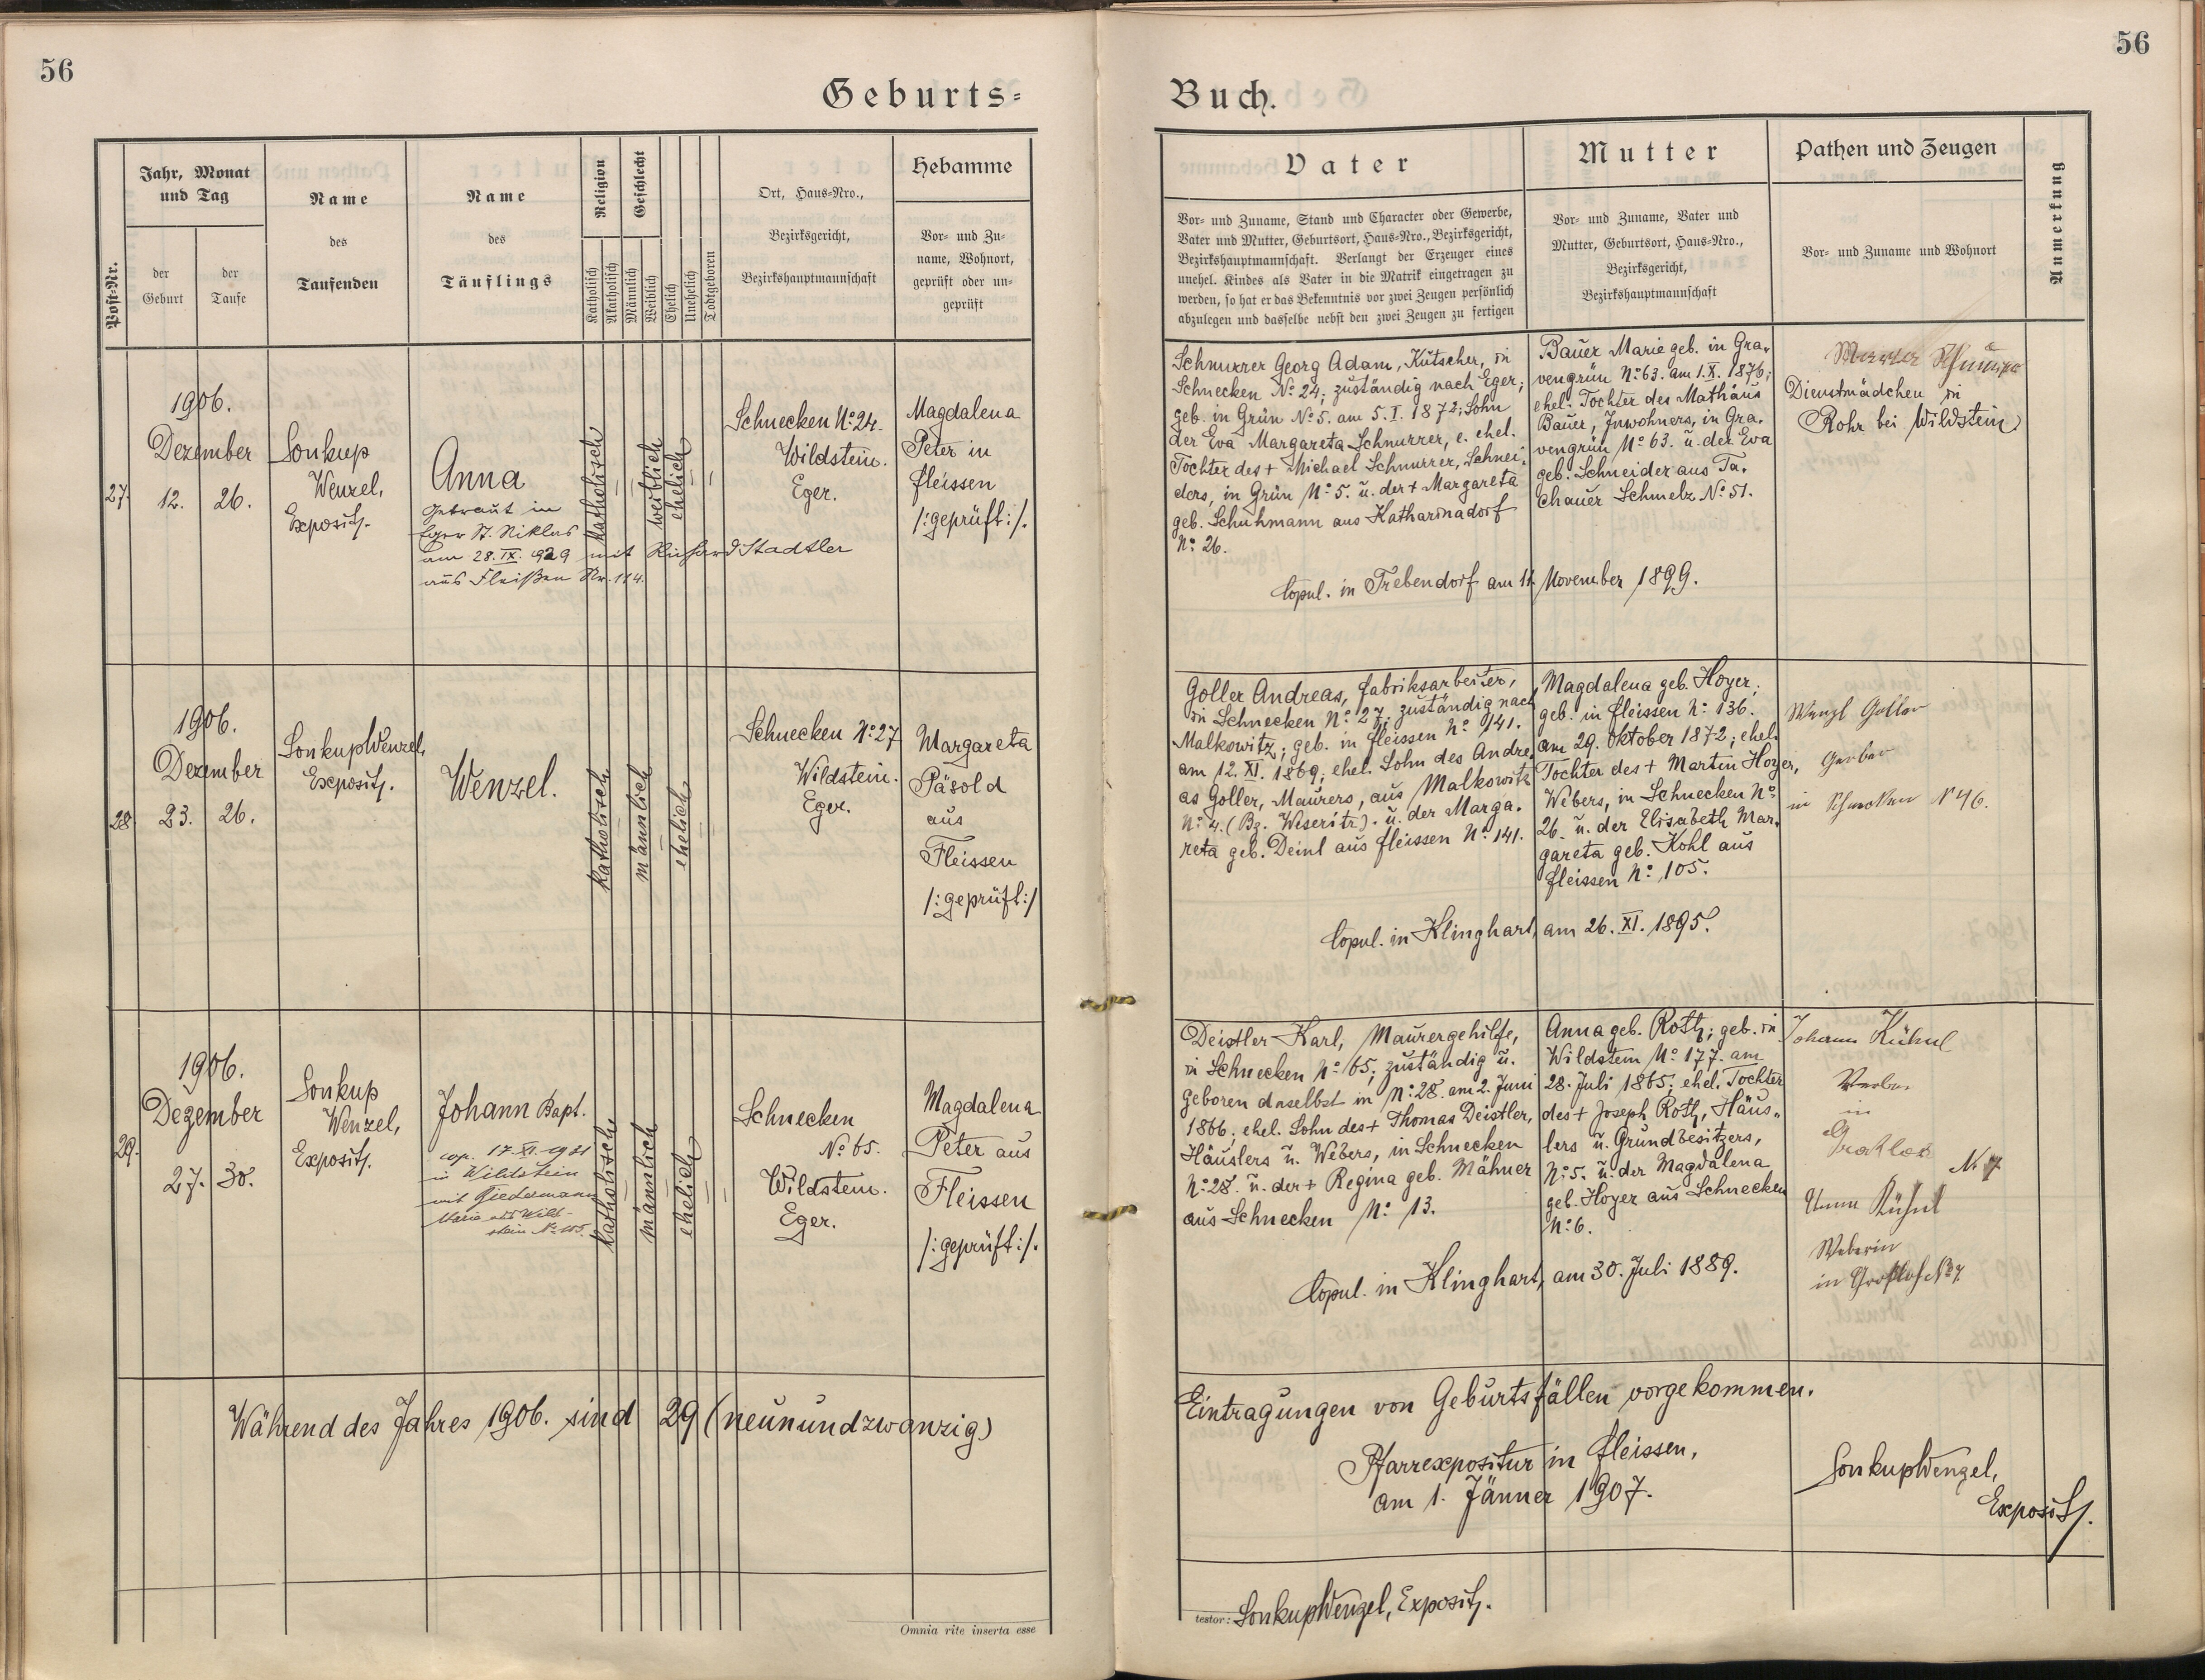 56
56
Geburts=
Buch.
Post-Nr.
Jahr, Monat
und Tag
der
Geburt
der
Taufe
Name
des
Taufenden
Name
des
Täuflings
Religion
Katholisch
Akatholisch
Geschlecht
Männlich
Weiblich
Ehelich
Unehelich
Todtgeboren
Ort, Haus=Nro.,
Bezirksgericht,
Bezirkshauptmannschaft
Hebamme
Vor= und Zu=
name, Wohnort,
geprüft oder un=
geprüft
Vater
Vor= und Zuname, Stand und Character oder Gewerbe,
Vater und Mutter, Geburtsort, Haus=Nro., Bezirksgericht,
Bezirkshauptmannschaft. Verlangt der Erzeuger eines
unehel. Kindes als Vater in die Matrik eingetragen zu
werden, so hat er das Bekenntnis vor zwei Zeugen persönlich
abzulegen und dasselbe nebst den zwei Zeugen zu fertigen
Mutter
Vor= und Zuname, Vater und
Mutter, Geburtsort, Haus=Nro.,
Bezirksgericht,
Bezirkshauptmannschaft
Pathen und Zeugen
Vor= und Zuname und Wohnort
Anmerkung
27.
1906.
Dezember
12. 26.
Sonkup
Wenzel,
Exposit.
Anna
Getraut in
Eger St. Niklas
am 28. IX. 1929 mit Richard Stadtler
aus Fleißen Nr. 114.
katholisch
weiblich
ehelich
Schnecken No. 24.
Wildstein.
Eger.
Magdalena
Peter in
Fleissen
/:geprüft:/.
Schnurrer Georg Adam, Kutscher, in
Schnecken No. 24; zuständig nach Eger;
geb. in Grün No. 5. am 5. I. 1872; Sohn
der Eva Margareta Schnurrer, e. ehel.
Tochter des + Michael Schnurrer, Schnei-
ders, in Grün No. 5. u. der + Margareta
geb. Schuhmann aus Katharinadorf
No. 26.
Bauer Marie geb. in Gra-
vengrün No. 63. am 1. X. 1876;
ehel. Tochter des Mathäus
Bauer, Inwohners, in Gra-
vengrün No. 63. u. der Eva
geb. Schneider aus Ta-
chauer Schmelz No. 51.
Dienstmädchen in
Rohr bei Wildstein
Copul. in Trebendorf am 11. November 1899.
28.
1906.
Dezember
23. 26.
Sonkup Wenzel,
Exposit.
Wenzel.
katholisch
männlich
ehelich
Schnecken No. 27
Wildstein.
Eger.
Margareta
Päsold
aus
Fleissen
/:geprüft:/
Goller Andreas, Fabriksarbeiter,
in Schnecken No. 27; zuständig nach
Malkowitz; geb. in Fleissen No. 141.
am 12. XI. 1869; ehel. Sohn des Andre-
as Goller, Maurers, aus Malkowitz
No. 4. (Bz. Weseritz). u. der Marga-
reta geb. Deinl aus Fleissen No. 141.
Magdalena geb. Hoyer;
geb. in Fleissen No. 136.
am 29. Oktober 1872; ehel.
Tochter des + Martin Hoyer,
Webers, in Schnecken No.
26. u. der Elisabeth Mar-
gareta geb. Kohl aus
Fleissen No. 105.
Wenzl Goller
Gerber
in Schnecken No 46.
Copul. in Klinghart, am 26. XI. 1895.
29.
1906.
Dezember
27. 30.
Sonkup
Wenzel,
Exposit.
Johann Bapt.
cop. 17. XI. 1931
in Wildstein
mit Giedermann
Marie aus Wild-
stein No 105.
katholisch
männlich
ehelich
Schnecken
No. 65.
Wildstein.
Eger.
Magdalena
Peter aus
Fleissen
/:geprüft:/.
Deistler Karl, Maurergehilfe,
in Schnecken No. 65; zuständig u.
geboren daselbst in No. 28. am 2. Juni
1866; ehel. Sohn des + Thomas Deistler,
Häuslers u. Webers, in Schnecken
No. 28. u. der + Regina geb. Mähner
aus Schnecken No. 13.
Anna geb. Roth; geb. in
Wildstein No. 177. am
28. Juli 1865; ehel. Tochter
des + Joseph Roth, Häus-
lers u. Grundbesitzers,
No. 5. u. der Magdalena
geb. Hoyer aus Schnecken
No. 6.
Johann Kühnl
Weber
in
No 7
Anna Kühnl
Weberin
in
Copul. in Klinghart, am 30. Juli 1889.
Während des Jahres 1906. sind 29 (neunundzwanzig)
Eintragungen von Geburtsfällen vorgekommen.
Pfarrexpositur in Fleissen,
am 1. Jänner 1907.
Sonkup Wenzel,
Exposit.
Omnia rite inserta esse
testor: Sonkup Wenzel, Exposit.